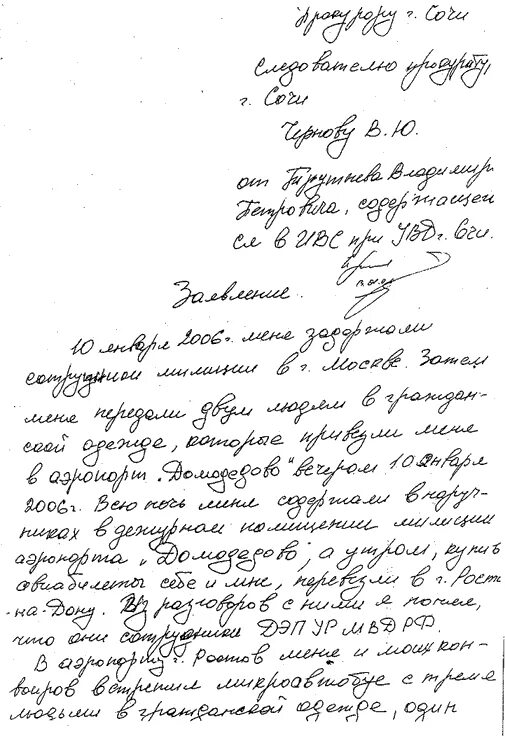 Прокурору г. Сочи
Следователю прокуратуры
г. Сочи
Чернову В. Ю.
от Владимира
Петровича, содержащего
ся в ИВС при УВД г. Сочи.
Заявление.
10 января 2006г. меня задержали
сотрудники милиции в г. Москве. Затем
меня передали двум людям в граждан-
ской одежде, которые привезли меня
в аэропорт „Домодедово" вечером 10 января
2006г. Всю ночь меня содержали в наруч-
никах в дежурном помещении милиции
аэропорта „Домодедово", а утром, купив
авиабилеты себе и мне, перевезли в г. Ростов
-на-Дону. Из разговоров с ними я понял,
что они сотрудники ДЭПУР МВД РФ.
В аэропорту г. Ростов меня и моих кон-
воиров встретил микроавтобус с тремя
людьми в гражданской одежде, один